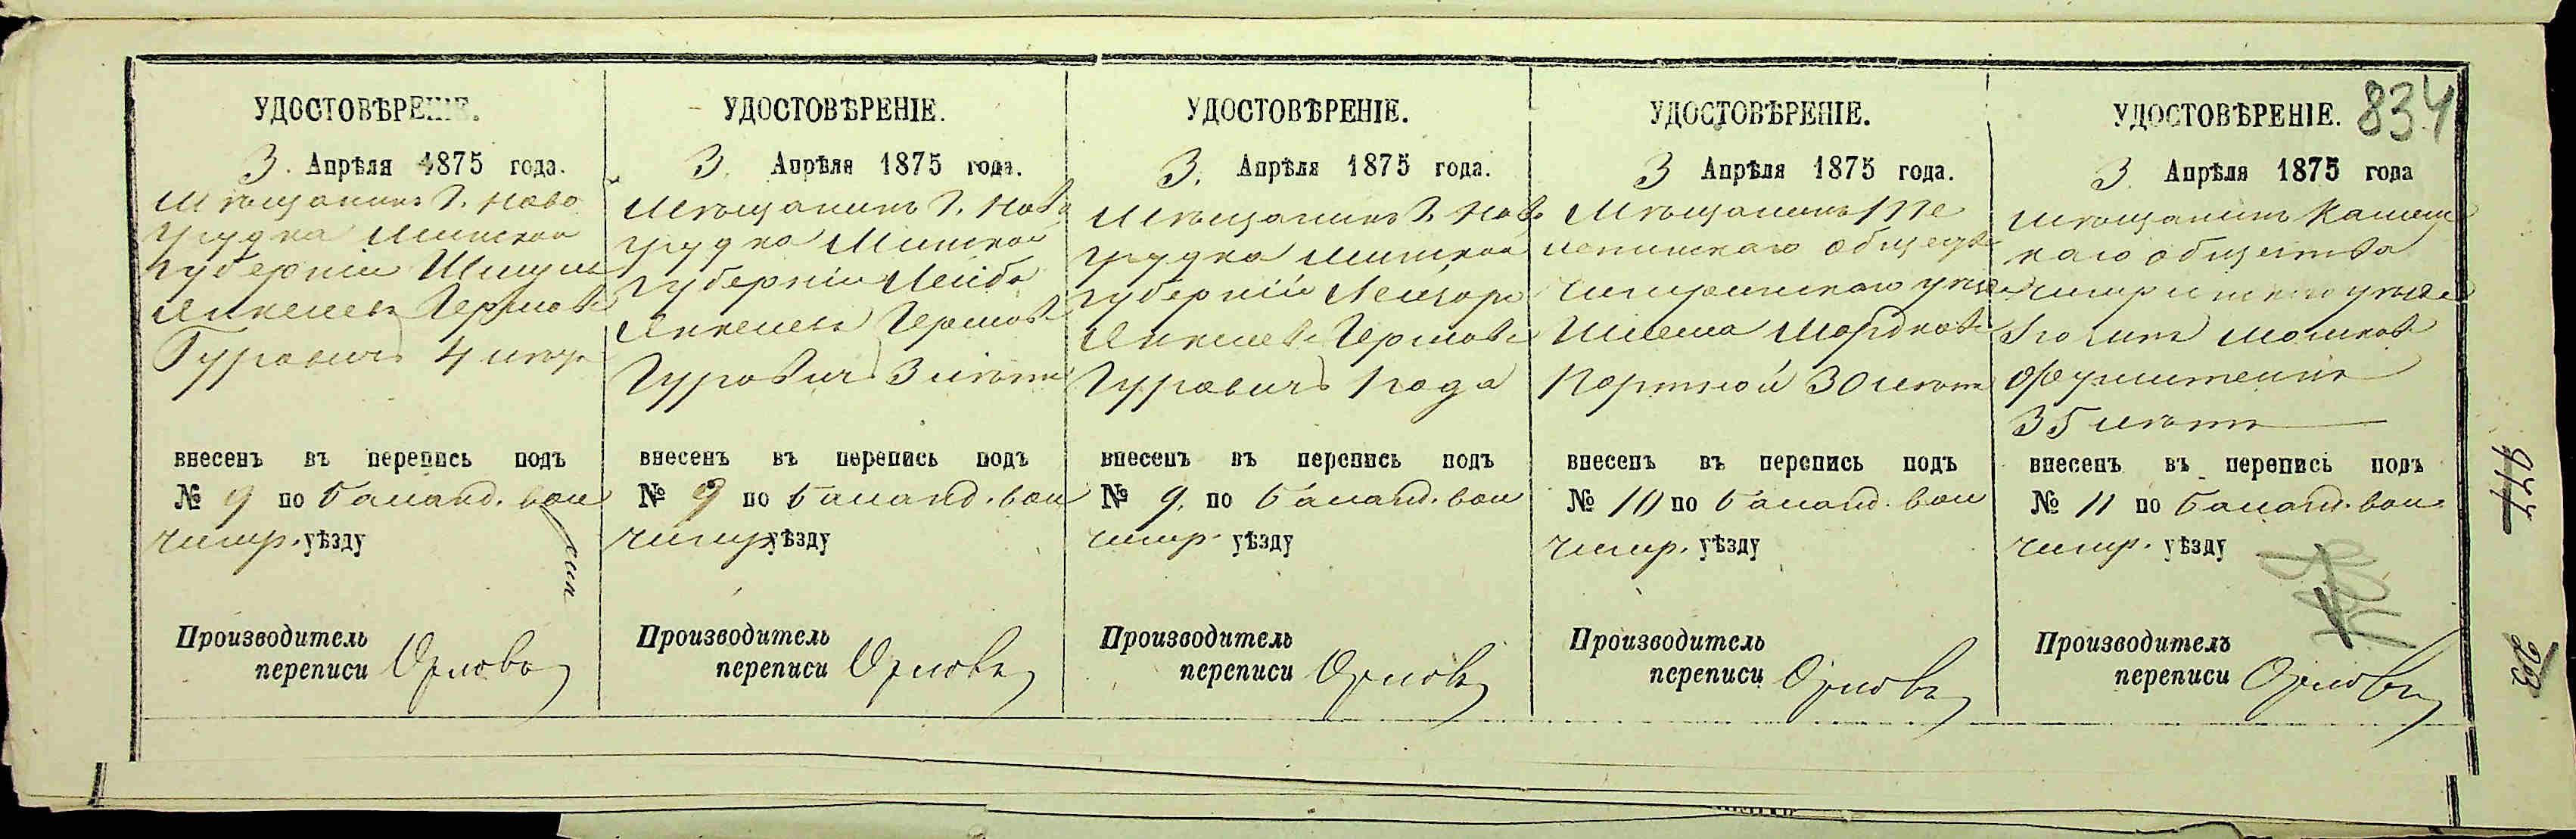 УДОСТОВѢРЕНІЕ.
3. Апрѣля 1875 года.
Мѣщанинъ г. Ново
грудка Минской
губерніи Шмуль
Янкелевъ Гершовъ
Гуровичъ 4 лѣтъ
внесенъ въ перепись подъ
№ 9 по Баланд. вол
чигир. уѣзду
Производитель
переписи Орловъ
УДОСТОВѢРЕНІЕ.
3. Апрѣля 1875 года.
Мѣщанинъ г. Ново
грудка Минской
губерніи Лейба
Янкелевъ Гершовъ
Гуровичъ 3 лѣтъ
внесенъ въ перепись подъ
№ 9 по Баланд. вол
чигир. уѣзду
Производитель
переписи Орловъ
УДОСТОВѢРЕНІЕ.
3. Апрѣля 1875 года.
Мѣщанинъ г. Ново
грудка Минской
губерніи
Янкелевъ Гершовъ
Гуровичъ 1 года
внесенъ въ перепись подъ
№ 9. по Баланд. вол
чигир. уѣзду
Производитель
переписи Орловъ
УДОСТОВѢРЕНІЕ.
3 Апрѣля 1875 года.
Мѣщанинъ
общества
Чигиринскаго уѣзда
Шлема Мордковъ
Портной 30 лѣтъ
внесенъ въ перепись подъ
№ 10 по Баланд. вол
чигир. уѣзду
Производитель
переписи Орловъ
УДОСТОВѢРЕНІЕ. 834
3. Апрѣля 1875 года
Мѣщанинъ Камен
каго общества
Чигиринскаго уѣзда
Мошков
35 лѣтъ
внесенъ въ перепись подъ
№ 11 по Баланд. вол.
чигир. уѣзду
Производитель
переписи Орловъ